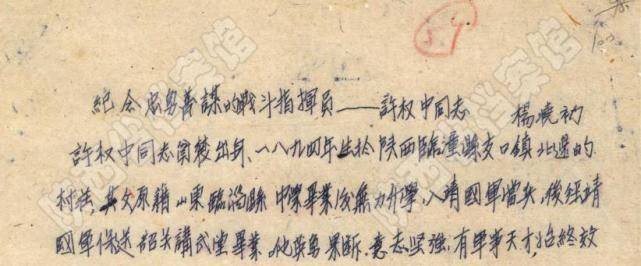 51
紀念忠勇善謀的战斗指揮員——許权中同志 楊曉初
許权中同志 出身,一八九四年生於陕西臨潼縣交口鎮北邊的
村荘,其父原籍山東臨沂縣 中學畢業後無力升學,入靖國軍當兵,後經靖
國軍保送 韶关講武堂畢業。他英勇果断,意志坚強,有軍事天才,始終效
陕西省档案馆